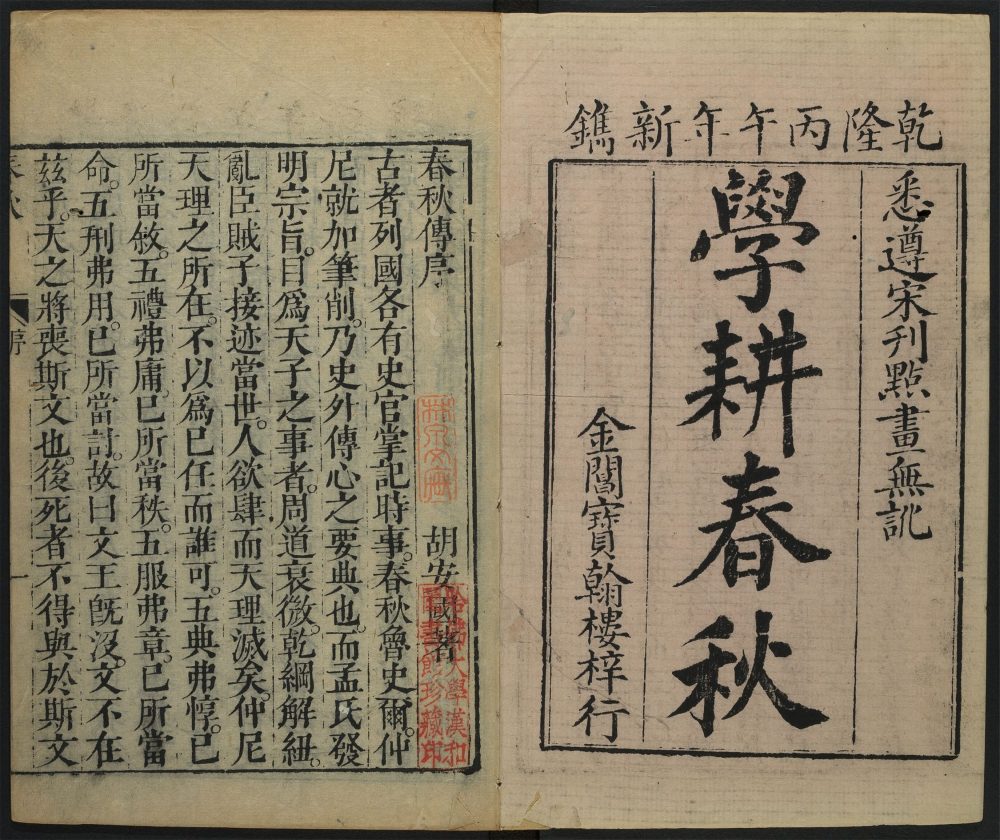 乾隆丙午年新鐫
悉遵宋刊點畫無訛
學耕春秋
金閶寶翰樓梓行
春秋傳序
胡安國著
哈佛大學漢和
圖書館珍藏印
古者列國各有史官掌記時事。春秋魯史爾。仲
尼就加筆削。乃史外傳心之要典也。而孟氏發
明宗旨。目爲天子之事者。周道衰微。乾綱解紐。
亂臣賊子接迹當世。人欲肆而天理滅矣。仲尼
天理之所在。不以爲已任而誰可。五典弗惇。已
所當敘。五禮弗庸。已所當秩。五服弗章。已所當
命。五刑弗用。已所當討。故曰文王旣沒。文不在
茲乎。天之將喪斯文也。後死者不得與於斯文
序
一